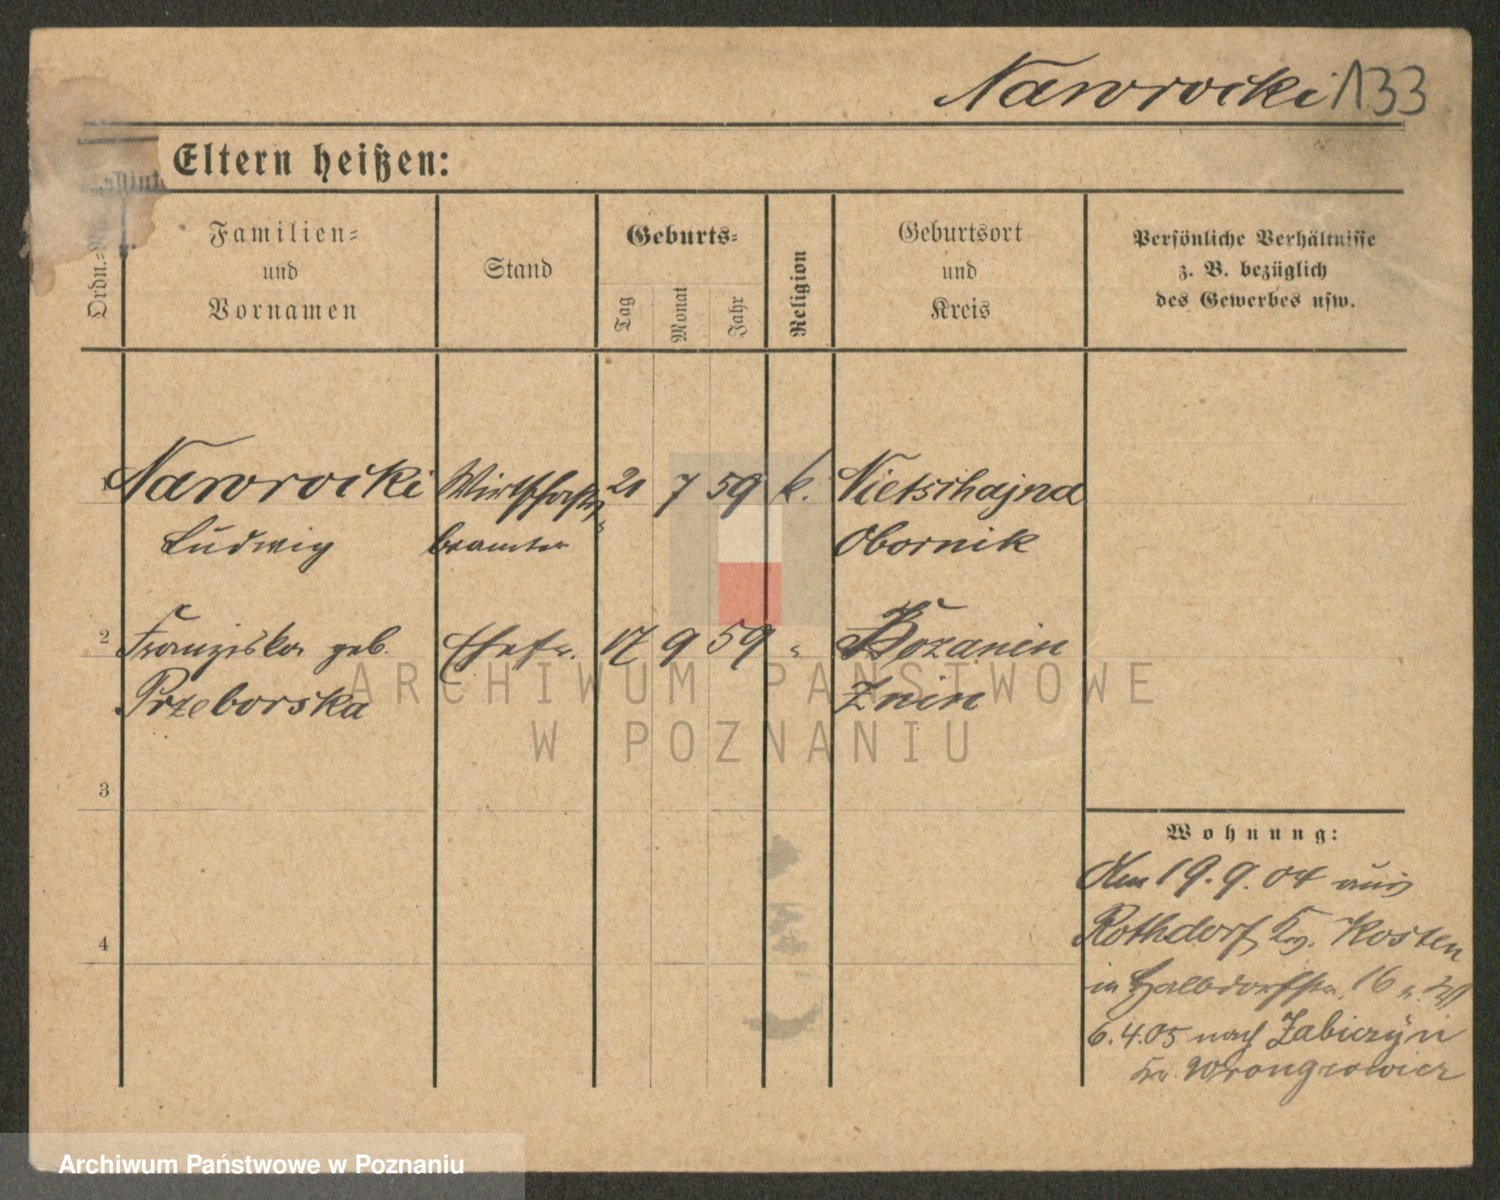 Nawrocki 133
Eltern heißen:
Ordn.=
Familien=
und
Vornamen
Stand
Geburts=
Tag
Monat
Jahr
Religion
Geburtsort
und
Kreis
Persönliche Verhältnisse
z. B. bezüglich
des Gewerbes usw.
1 Nawrocki Wirtschafts 21 7 59 k. Nietschajna
Ludwig beamter Obornik
2 Franziska geb. Ehefr. 17 9 59 " Bozanin
Przeborska Znin
3
4
Wohnung:
Am 19.9.04 aus
Rothdorf, Kr. Kosten
in Halbdorfstr. 16
6.4.05 nach Zabiczyn
Kr. Wrongrowicz
ARCHIWUM PAŃSTWOWE
W POZNANIU
Archiwum Państwowe w Poznaniu